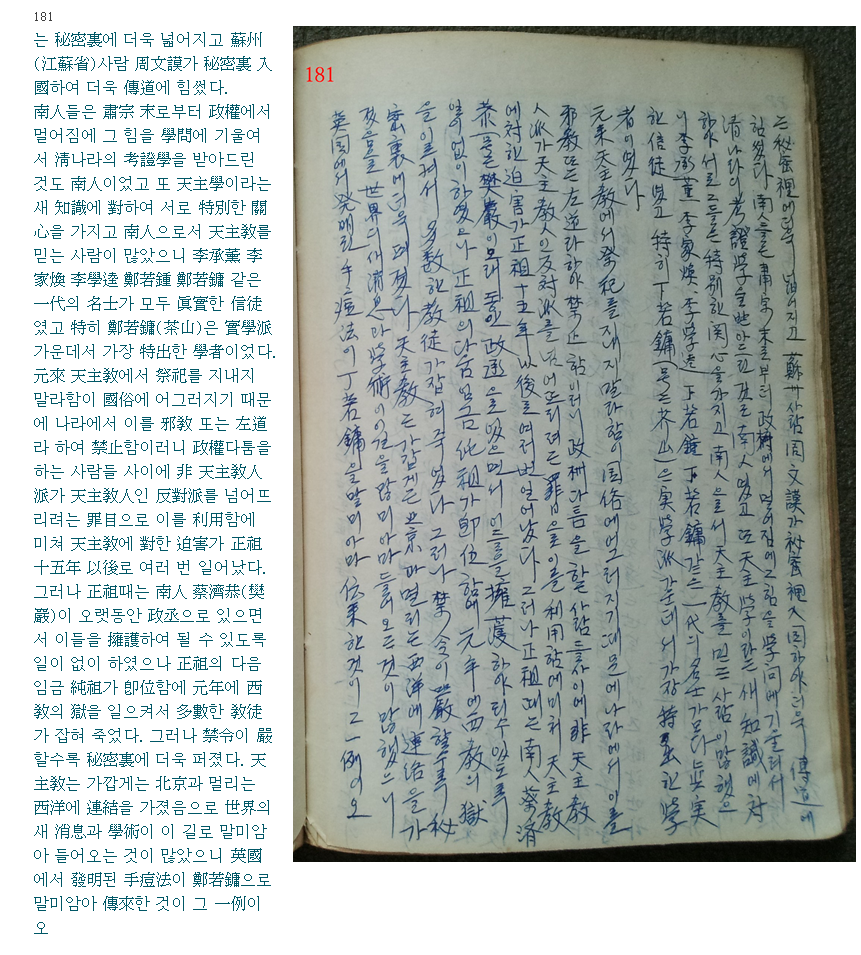 181
는 秘密裏에 더욱 넓어지고 蘇州
(江蘇省)사람 周文謨가 秘密裏 入
國하여 더욱 傳道에 힘썼다.
南人들은 肅宗 末로부터 政權에서
멀어짐에 그 힘을 學問에 기울여
서 淸나라의 考證學을 받아드린
것도 南人이었고 또 天主學이라는
새 知識에 對하여 서로 特別한 關
心을 가지고 南人으로서 天主敎를
믿는 사람이 많았으니 李承薰 李
家煥 李學逵 鄭若鍾 鄭若鏞 같은
一代의 名士가 모두 眞實한 信徒
였고 特히 鄭若鏞(茶山)은 實學派
가운데서 가장 特出한 學者이었다.
元來 天主敎에서 祭祀를 지내지
말라함이 國俗에 어그러지기 때문
에 나라에서 이를 邪敎 또는 左道
라 하여 禁止함이러니 政權다툼을
하는 사람들 사이에 非 天主敎人
派가 天主敎人인 反對派를 넘어뜨
리려는 罪目으로 이를 利用함에
미쳐 天主敎에 對한 迫害가 正祖
十五年 以後로 여러 번 일어났다.
그러나 正祖때는 南人 蔡濟恭(樊
巖)이 오랫동안 政丞으로 있으면
서 이들을 擁護하여 될 수 있도록
일이 없이 하였으나 正祖의 다음
임금 純祖가 卽位함에 元年에 西
敎의 獄을 일으켜서 多數한 敎徒
가 잡혀 죽었다. 그러나 禁令이 嚴
할수록 秘密裏에 더욱 퍼졌다. 天
主敎는 가깝게는 北京과 멀리는
西洋에 連結을 가졌음으로 世界의
새 消息과 學術이 이 길로 말미암
아 들어오는 것이 많았으니 英國
에서 發明된 手痘法이 鄭若鏞으로
말미암아 傳來한 것이 그 一例이
오
181
는 秘密裡에 더욱 넓어지고 蘇州사람 周文謨가 秘密裡 入国하야 더욱 傳道에
힘썼다 南人들은 肅宗 末로부터 政権에서 멀어짐에 그 힘을 學问에 기울려서
淸나라의 考證學을 받아드린 것도 南人였고 또 天主學이라는 새 知識에 対
하야 서로 그들은 特別한 関心을 가지고 南人으로서 天主敎를 믿는 사람이 많했으
니 李承薰 李家煥 李学逵 丁若鍾 丁若鏞 같은 一代의 名士가 모다 眞実
한 信徒였고 特히 丁若鏞 号는 茶山 은 実学派 가운데서 가장 特出한 学
者이였다
元来 天主敎에서 祭祀를 지내지 말라 함이 国俗에 어그러지기 때문에 나라에서 이를
邪敎 또는 左道라 하야 禁止함이러니 政権다틈을 하는 사람들 사이에 非天主敎
人派가 天主敎人인 反対派를 넘어뜨리려는 罪目으로 이를 利用함에 미처 天主敎
에 対한 迫害가 正祖十五年 以後로 여러번 일어났다 그러나 正祖때는 南人 蔡済
恭 号는 樊巖이 오래동안 政丞으로 있으면서 이들을 擁護하야 되수있도록
일이 없이 하였으나 正祖의 다음 임금 純祖가 即位함에 元年에 西敎의 獄
을 이르켜서 多数한 敎徒가 잡혀 죽었다 그러나 禁令이 嚴할수록 秘
密裏에 더욱 퍼졌다 天主敎는 가깝게는 北京 과 멀리는 西洋에 連結을 가
젔음으로 世界의 새 消息과 學術이 이 길을 말미아마 들어오는것이 많했으니
英国에서 発明된 手痘法이 丁若鏞을 말미아마 伝来한것이 그 一例이오